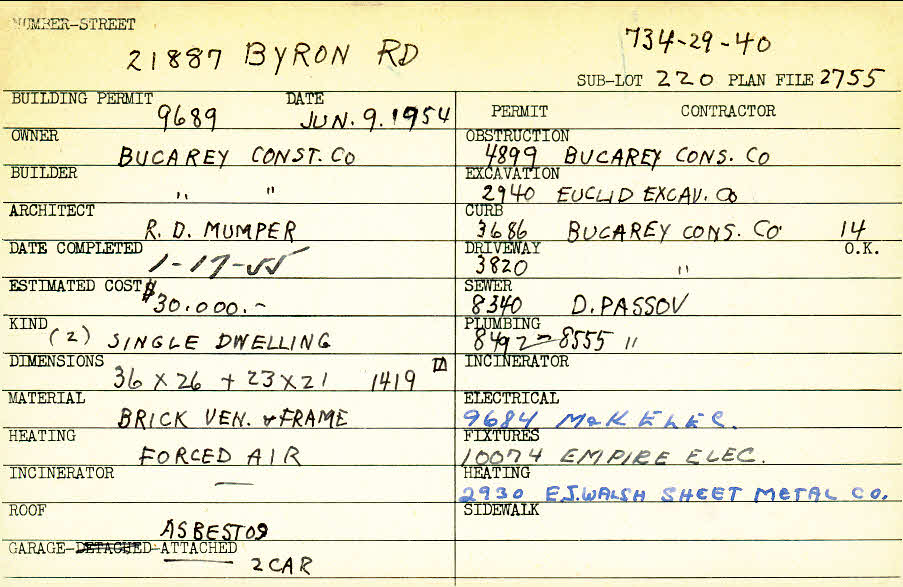 NUMBER-STREET
21887 BYRON RD
734-29-40
SUB-LOT 220 PLAN FILE 2755
BUILDING PERMIT DATE
9689 JUN. 9. 1954
OWNER
BUCAREY CONST. CO
BUILDER
" "
ARCHITECT
R. D. MUMPER
DATE COMPLETED
1-17-55
ESTIMATED COST $
30.000.-
KIND
(2) SINGLE DWELLING
DIMENSIONS
36 X 26 + 23 X 21 1419
MATERIAL
BRICK VEN. & FRAME
HEATING
FORCED AIR
INCINERATOR
—
ROOF
ASBESTOS
GARAGE-DETACHED-ATTACHED
2 CAR
PERMIT CONTRACTOR
OBSTRUCTION
4899 BUCAREY CONS. CO
EXCAVATION
2940 EUCLID EXCAV. CO
CURB
3686 BUCAREY CONS. CO 14
DRIVEWAY O.K.
3820 "
SEWER
8340 D. PASSOV
PLUMBING
8492-8555 "
INCINERATOR
ELECTRICAL
9684 M&K ELEC.
FIXTURES
10074 EMPIRE ELEC.
HEATING
2930 E.J. WALSH SHEET METAL CO.
SIDEWALK